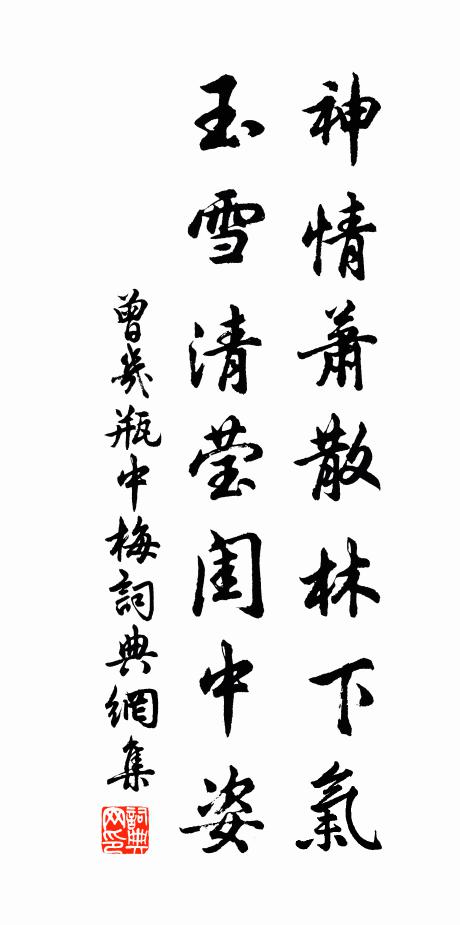 神情蕭散林下氣
玉雪清莹閨中姿
曾幾瓶中梅詞典網集
詞典網印